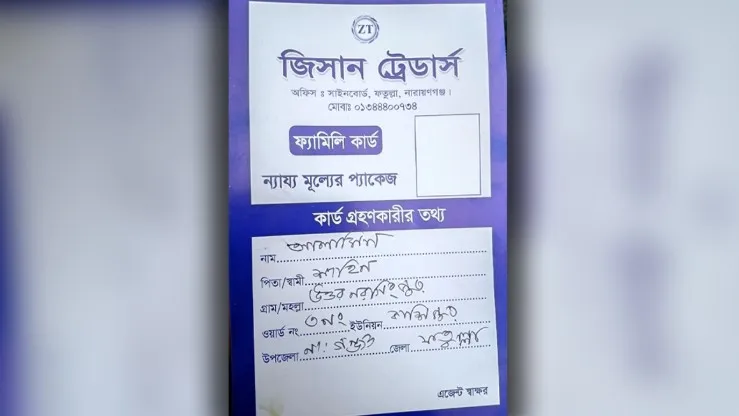 ZT
জিসান ট্রেডার্স
অফিস ঃ সাইনবোর্ড, ফতুল্লা, নারায়ণগঞ্জ।
মোবাঃ ০১৩৪৪৪০০৭৩৪
ফ্যামিলি কার্ড
ন্যায্য মূল্যের প্যাকেজ
কার্ড গ্রহণকারীর তথ্য
নাম আলামিন
পিতা/স্বামী শাহিন
গ্রাম/মহল্লা উত্তর নরসিংপুর
ওয়ার্ড নং ৩নং ইউনিয়ন কাশিপুর
উপজেলা না: গঞ্জ জেলা ফতুল্লা
এজেন্ট স্বাক্ষর